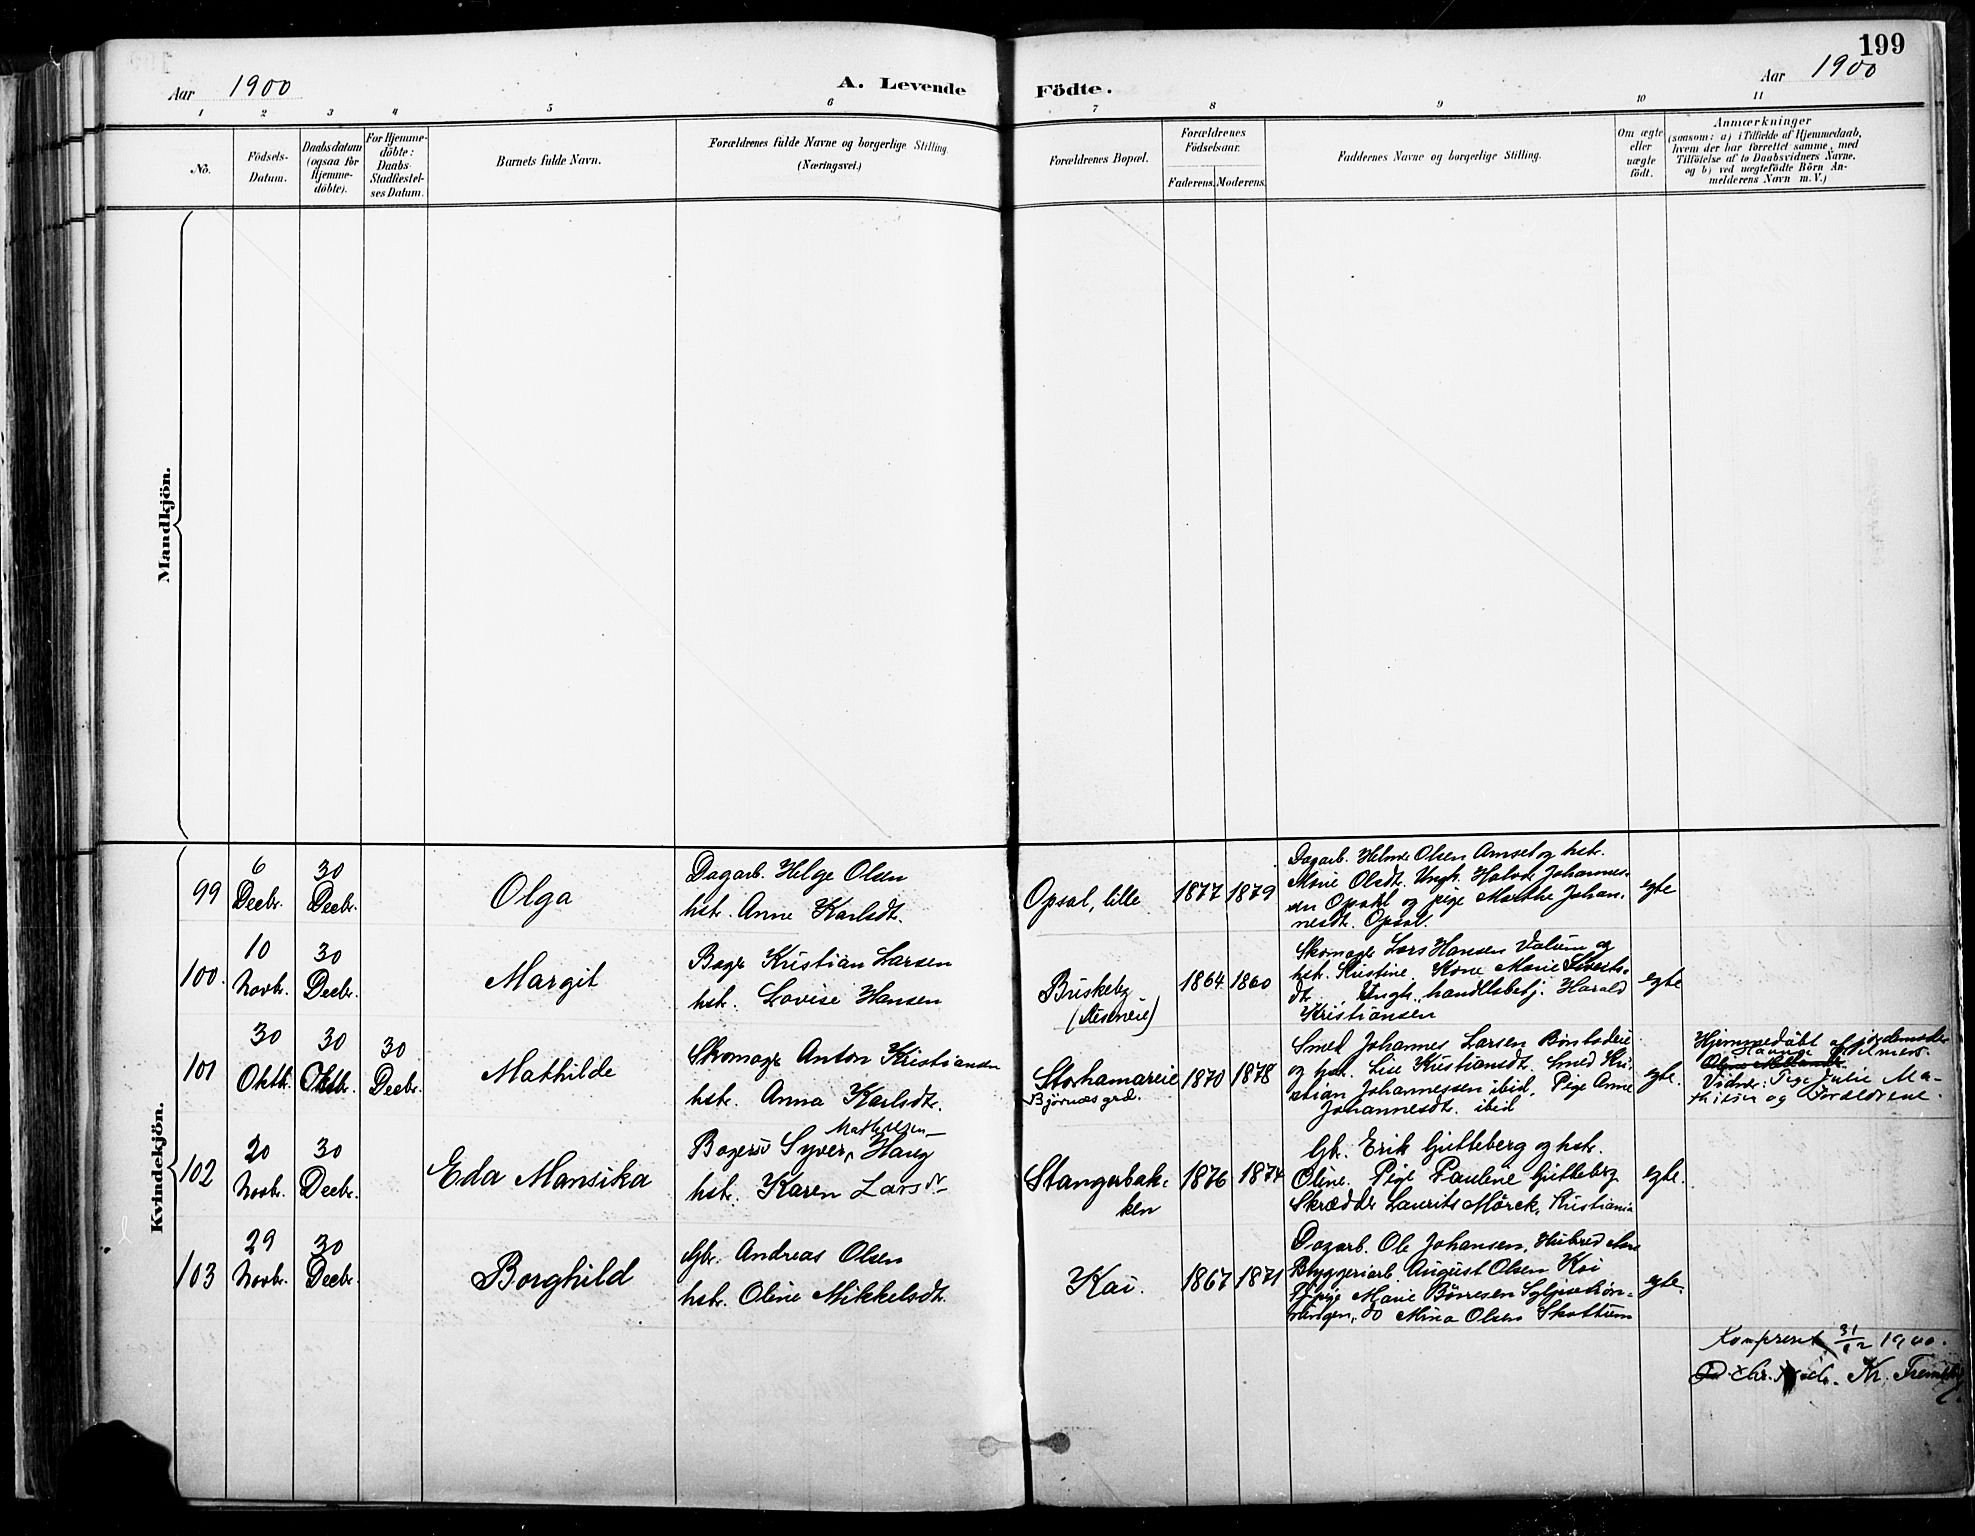 199
Aar 1900 A. Levende Födte. Aar 1900
1 2 3 4 5 6 7 8 9 10 11
No.
Födsels-
Datum.
Daabsdatum
(ogsaa for
Hjemme-
döbte).
For Hjemme-
döbte:
Daabs-
Stadfæstel-
ses Datum.
Barnets fulde Navn.
Forældrenes fulde Navne og borgerlige Stilling
(Næringsvei.)
Forældrenes Bopæl.
Forældrenes
Födselsaar.
Faderens. Moderens.
Faddernes Navne og borgerlige Stilling.
Om ægte
eller
uægte
födt.
Anmærkninger
(saasom: a) i Tilfælde af Hjemmedaab,
hvem der har forrettet samme, med
Tilföielse af to Daabsvidners Navne,
og b) ved uægtefödte Börn An-
melderens Navn m. V.)
Mandkjön.
Kvindekjön.
99
6
Decbr.
30
Decbr.
Olga
Dagarb. Helge Olsen
hstr. Anne Karlsdt.
Opsal, lille
1877 1879
Dagarb. Helmer Olsen Arnset og hstr.
Marie Olsdt. Ungk. Halvor Johannes-
sen Opsahl og pige Marthe Johan-
nesdt. Opsal.
egte
100.
10
Novbr.
30
Decbr.
Margit
Bager Kristian Larsen
hstr. Lovise Hansen
Briskeby
1864 1860
Skomager Lars Hansen Valum og
hstr. Kristine. Kone Marie
dt. Ungk. handlsbetj. Harald
Kristiansen
egte
101
30
Oktb.
30
Oktbr.
30
Decbr.
Mathilde
Skomager Anton Kristiansen
hstr. Anna Karlsdt.
Storhamareie
Bjørnæsgrd.
1870 1878
Smed Johannes Larsen
og hstr. Lise Kristiansdt. Smed Kri-
stian Johannessen ibid. Pige Anne
Johannesdt. ibid
egte.
Hjemmedøbt af jordemoder
Vidner: Pige Julie Ma-
thisen og Forældrene.
102
20
Novbr.
30
Decbr.
Eda Mansika
Mathisen
Bagersv. Syver Haug
hstr. Karen Larsdt
Stangerbak-
ken
1876 1874
Gb. Erik Gjetleberg og hstr.
Oline. Pige Pauline Gjetleberg
Skrædder Laurits Mörck, Kristiania
egte.
103
29
Novbr.
30
Decbr.
Borghild
Gbr. Andreas Olsen
hstr. Oline Mikkelsdt.
Kai.
1867 1871
Dagarb. Ole Johansen,
Bryggeriarb. August Olsen Kai
Tj.pige Marie Børresen
do Mina Olsen Skattum
egte.
31/12 1900.